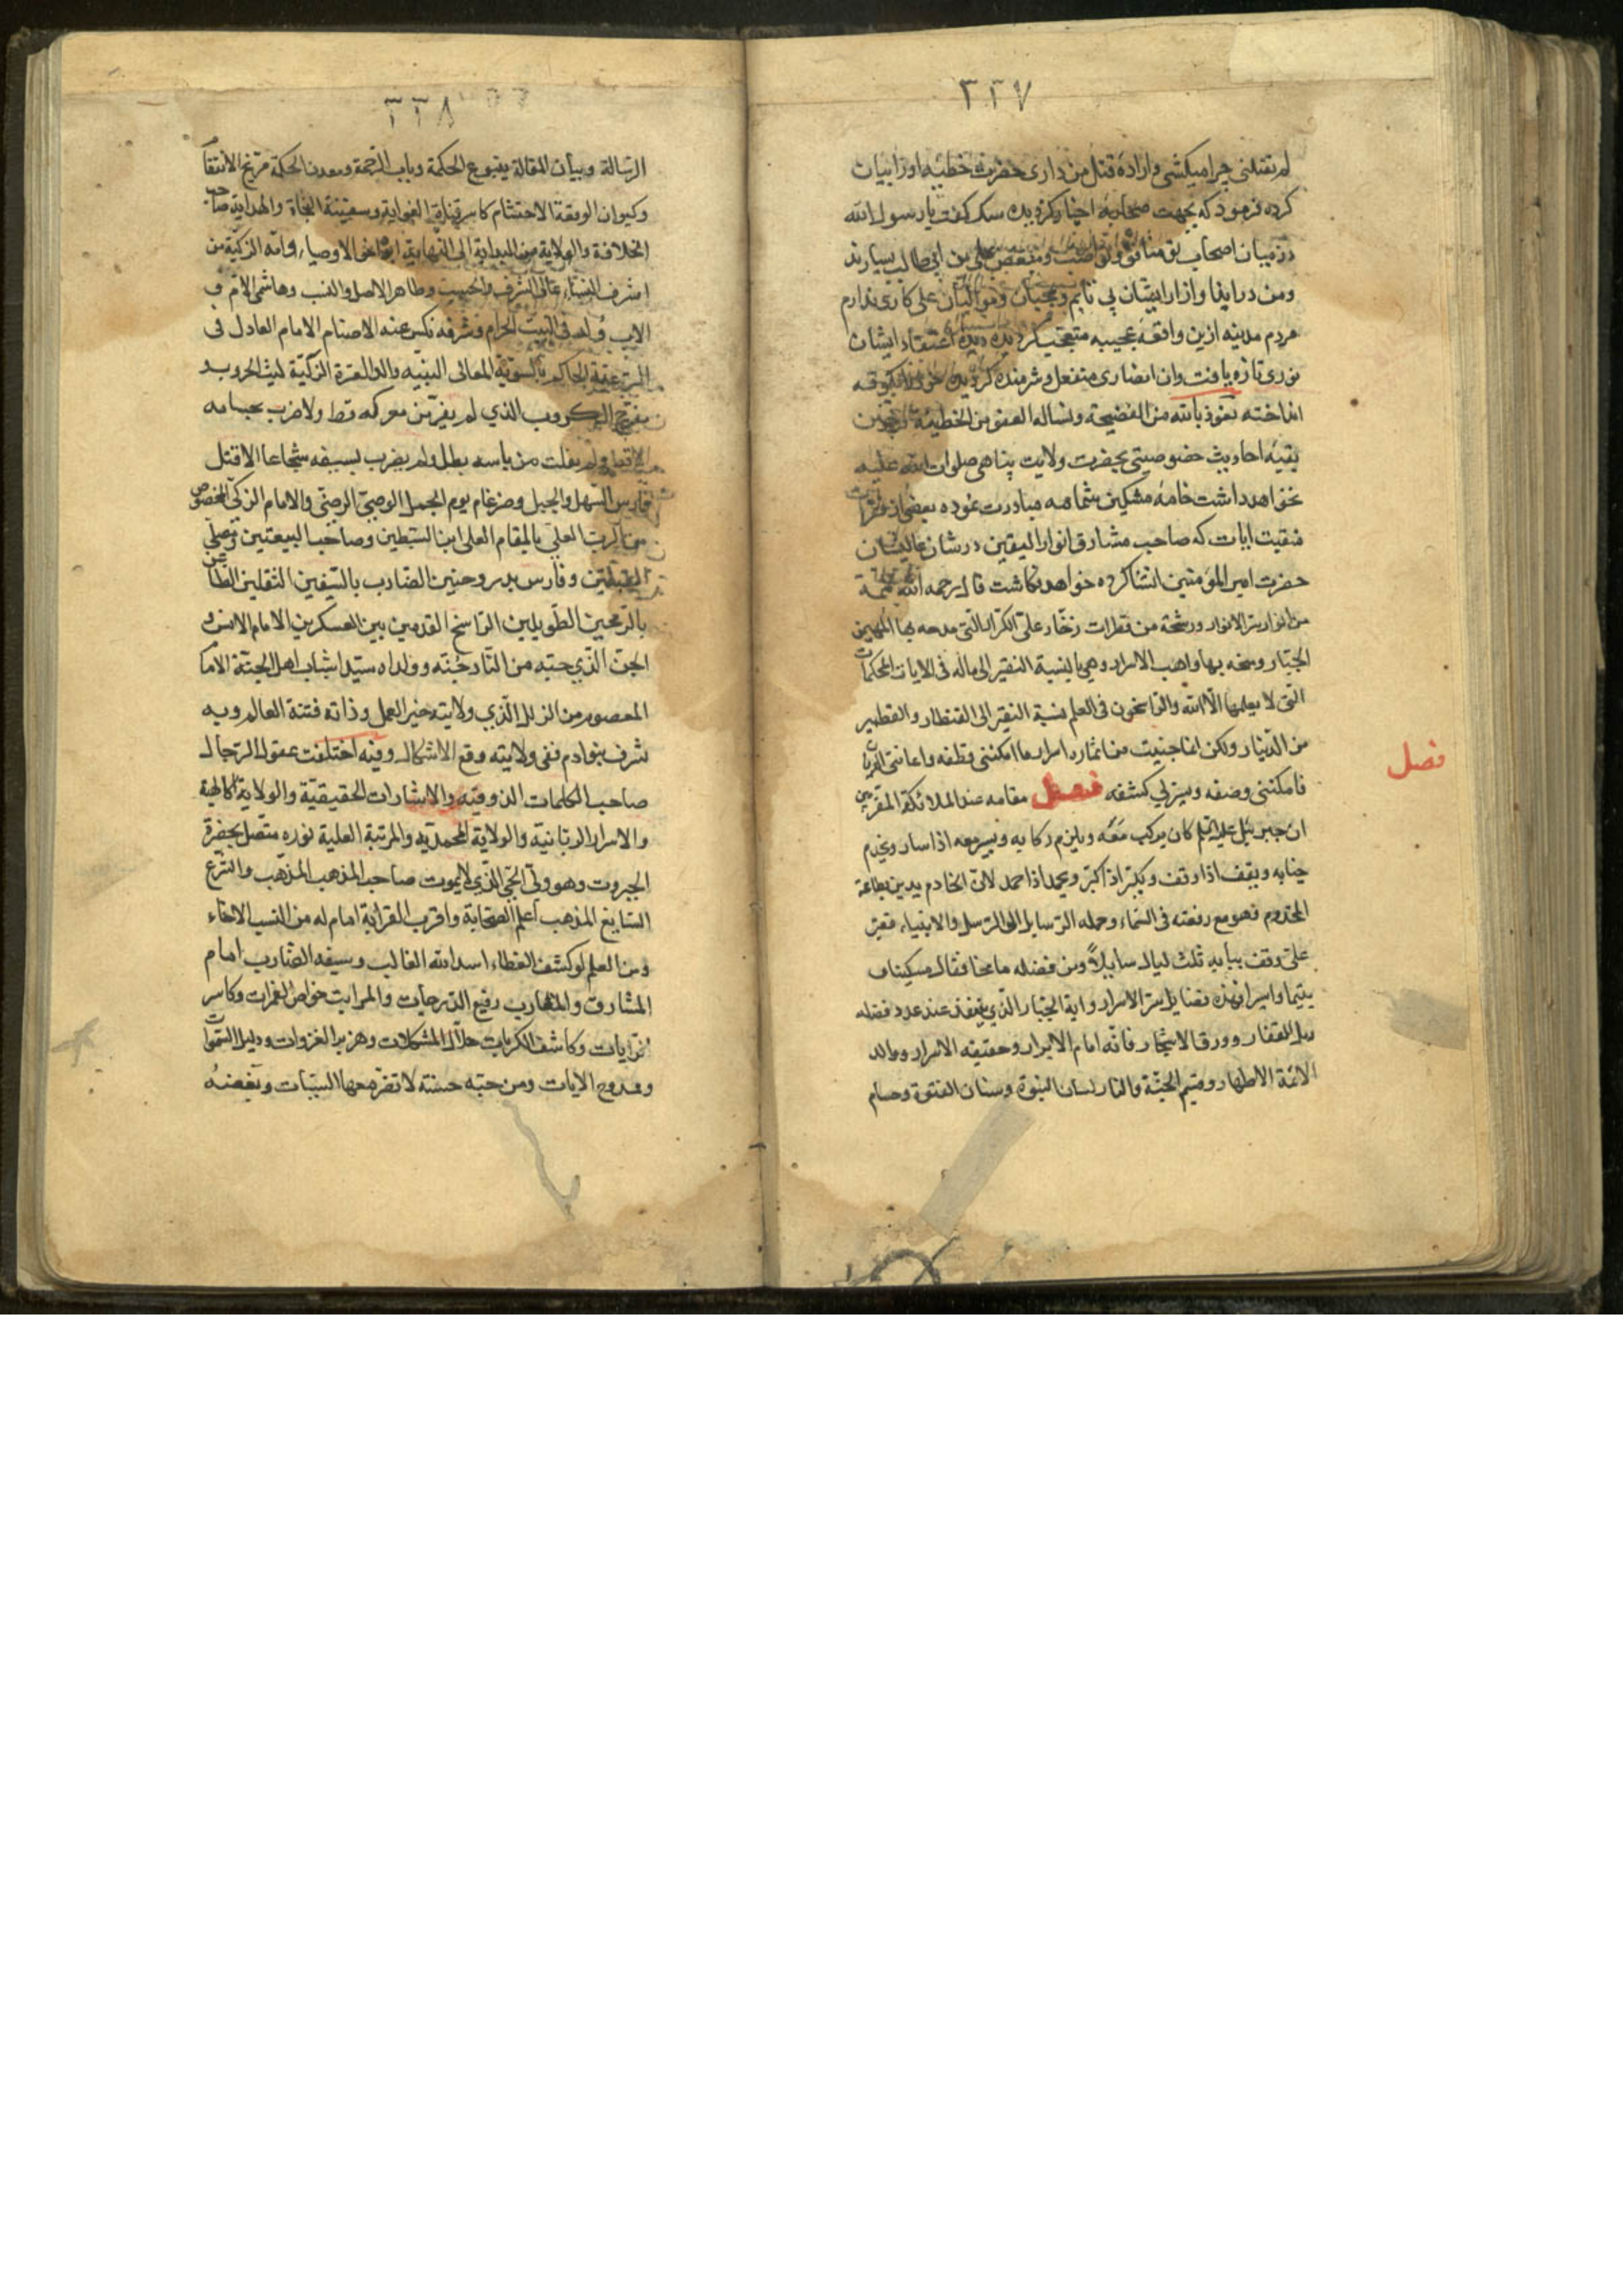 ۲۲۷
لم تقتلنی چرا میکشی و اراده قتل من داری حضرت خطیئه او را بیان
کرده فرمود که بجهت محاربه اجبار کردیده سک کفت یا رسول الله
در میان اصحاب تو منافق و ناصب و مبغض علی بن ابی طالب بسیارند
و من در ایذا و ازار ایشان بی تابم و محبان و موالیان علی کاری ندارم
مردم مدینه ازین واقعه عجیبه متعجب کردیده دیده اعتقاد ایشان
نوری تازه یافت وان انصاری منفعل و شرمنده کردیده
انداخته نعوذ بالله من الفضیحة ونساله العفو من الخطیئة
بقیه احادیث خصوصیتی بحضرت ولایت پناهی صلوات الله علیه
نخواهد داشت خامه مشکین شمامه مبادرت نموده بعضی از فقرات
منقبت ایات که صاحب مشارق انوار الیقین در شان عالیشان
حضرت امیر المؤمنین انشا کرده خواهد نکاشت قال رحمه الله
من انوار سر الانوار ورشحة من قطرات زخار علی الکرار التی مدحه بها المهیمن
الجبار وسخه بها واهب الاسرار وهی بالنسبة النقیر الی ماله فی الایات المحکمات
التی لا یعلمها الا الله والراسخون فی العلم نسبة النقیر الی القنطار والقطمیر
من الدینار ولکن انما جنیت من اثمار اسراره ما امکننی قطفه واعاننی
فامکننی وصفه ویسر لی کشفه فصل مقامه عند الملائکة المقربین
ان جبرئیل علیه السلم کان یرکب معه ویلزم رکابه ویسیر معه اذا سار ویخدم
جنابه ویقف اذا وقف ویکبر اذا کبر ویحمد اذا حمد لان الخادم یدین بطاعة
المخدوم فهو مع رفعته فی السماء وحمله الرسایل الی الرسل والانبیاء فقیر
علی وقف ببابه ثلث لیال سایلاً ومن فضله ما عدا فقال مسکینا و
یتیما واسیرا فهذه فضایل سر الاسرار وایة الجبار الذی ینفد عند عدد فضله
رمل القفار وورق الاشجار فانه امام الابرار وحقیقه الاسرار ووالد
الائمة الاطهار وقسیم الجنة والنار لسان النبوة وسنان الفتوة وحسام
فصل
۲۲۸
الرسالة وبیان المقالة ینبوع الحکمة وباب الرحمة ومعدن الحکمة مریخ الانتقام
وکیوان الرفعة الاحتشام کاسر قناة الغوایة وسفینة النجاة والهدایة صاحب
الخلافة والولایة من البدایة الی النهایة اخی الاوصیاء وامه الزکیة من
اشرف النساء عالی الشرف والحسب وطاهر الاصل والنسب وهاشمی الام و
الاب ولد فی البیت الحرام وشرفه نکس عنه الاصنام الامام العادل فی
الرعیة الحاکم بالسویة المعالی البنیه والد العترة الزکیة لیث الحروب و
مفرج الکروب الذی لم یفر من معرکه قط ولا ضرب بحسامه
الا قط ولم یفلت من باسه بطل ولم یضرب بسیفه شجاعا الا قتل
فارس السهل والجبل وضرغام یوم الجمل الوصی الرضی والامام الزکی المخصوص
من الرب العلی بالمقام العلی ابن السبطین وصاحب البیعتین ومصلی
القبلتین وفارس بدر وحنین الضارب بالسیفین الثقلین الطاعن
بالرمحین الطویلین الراسخ القدمین بین العسکرین الامام الانس و
الجن الذی حبه من النار جنته وولداه سیدا شباب اهل الجنة الامام
المعصوم من الزلل الذی ولایته خیر العمل وذاته فتنة العالم وبه
شرف بنو ادم ففی ولایته وقع الاشکال وفیه اختلفت عقول الرجال
صاحب الکلمات الذوقیه والاشارات الحقیقیة والولایة الالهیة
والاسرار الربانیة والولایة المحمدیه والمرتبة العلیة نوره متصل بحضرة
الجبروت وهو ولی الحی الذی لا یموت صاحب المذهب المذهب والشرع
السایغ المذهب اعلم الصحابة واقرب القرابة امام له من النسب الاخاء
ومن العلم لو کشف الغطاء اسد الله الغالب وسیفه الضارب امام
المشارق والمغارب رفیع الدرجات والمراتب خواض الغمرات وکاسر
الرایات وکاشف الکربات حلال المشکلات وهزبر الغزوات ودلیل السموات
وممدوح الایات ومن حبه حسنة لا تضر معها السیئات وبغضه